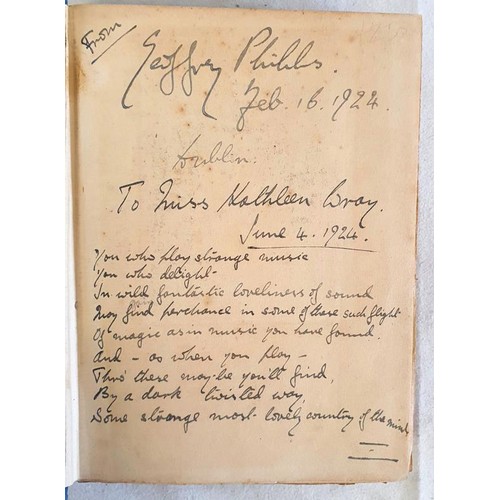 From
Geoffrey Phibbs.
Feb. 16. 1924.
Dublin.
To Miss Kathleen Cray.
June 4. 1924.
You who play strange music
You who delight
In wild fantastic loveliness of sound
May find perchance in some of these such flight
Of magic as in music you have found.
And - as when you play -
Thro' these may-be you'll find,
By a dark twisted way,
Some strange most lovely country of the mind